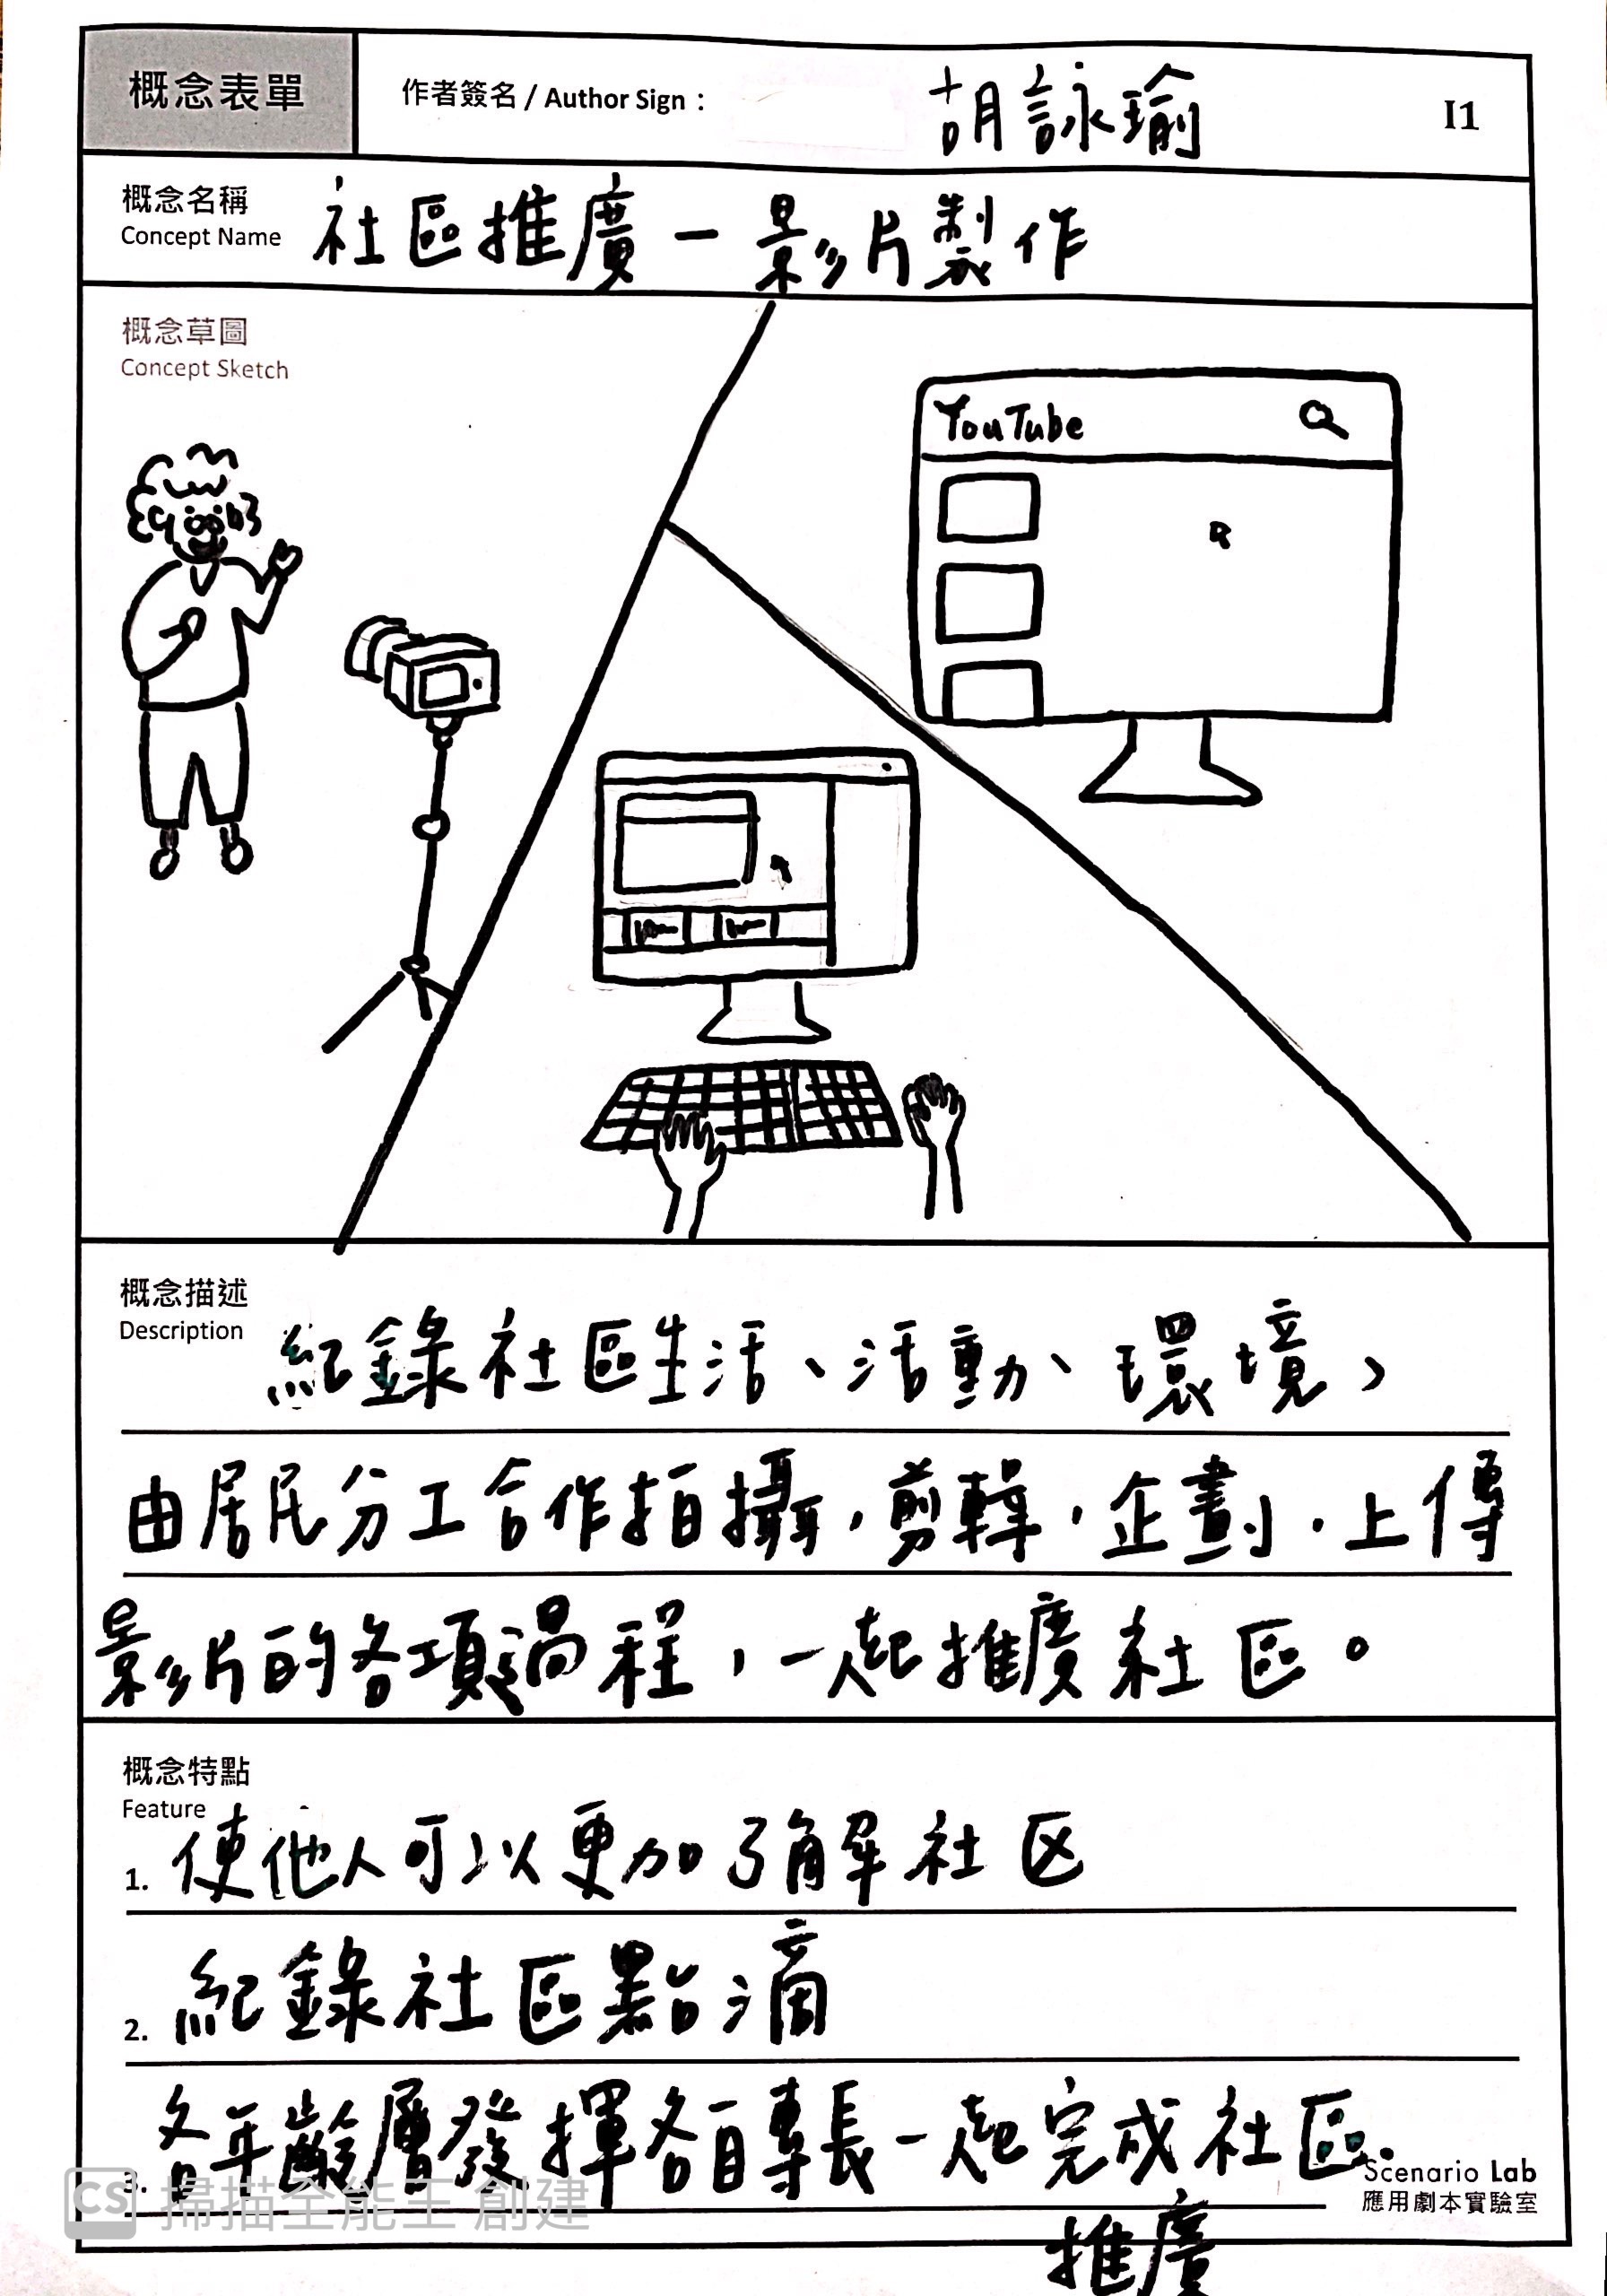 概念表單
作者簽名 / Author Sign：
胡詠瑜
I1
概念名稱
Concept Name
社區推廣－影片製作
概念草圖
Concept Sketch
YouTube
概念描述
Description
紀錄社區生活、活動、環境，
由居民分工合作拍攝，剪輯，企劃，上傳
影片的各項過程，一起推廣社區。
概念特點
Feature
1. 使他人可以更加了解社区
2. 紀錄社區點滴
3. 各年齡層發揮各自專長一起完成社區
推廣
Scenario Lab
應用劇本實驗室
CS 掃描全能王 創建